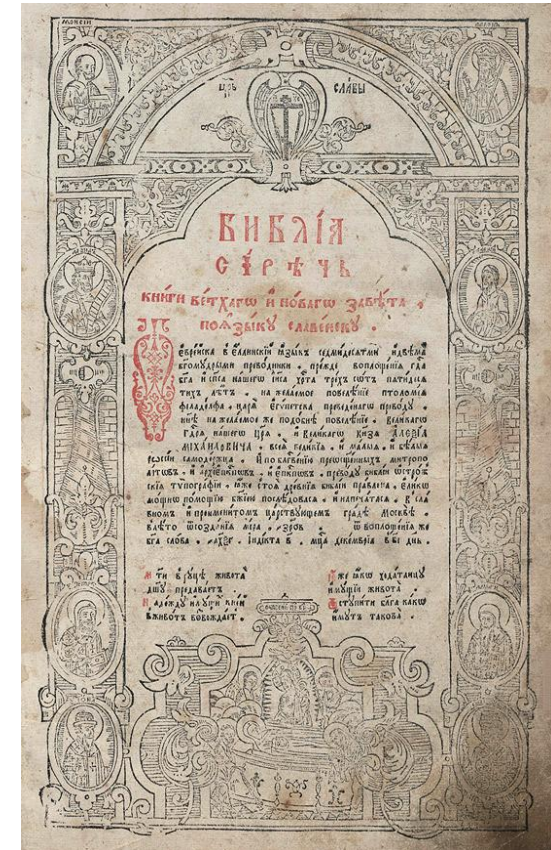 МОѴСІЙ
ЦРЬ СЛАВЫ
БИБЛІА
СИ́РѢЧЬ
КНИГИ ВЕТХАГѠ И НОВАГѠ ЗАВѢТА .
ПОѦЗЫКУ СЛАВЕНСКУ .
еврейска в еллинскій ѧзыкъ седмидесѧтми и двѣма
бгомудрыми преводники . прежде воплощенїѧ гда
бга и спса нашегѡ іиса хрта трехъ сотъ патидесѧ
тихъ лѣтъ . на желаемое повелѣнїе птоломїа
филаделфа . царѧ египетска преведенагѡ приводу .
нне на желаемое же подобнѣ повелѣнїе . великагѡ
гдрѧ нашегѡ црѧ . и великагѡ кнзѧ АЛЕѮІА
МІХАИЛОВИЧА . всеѧ великїѧ . и малыѧ . и бѣлыѧ
рѡссїи самодержца . И по блгвенїю преѡсщенныхъ митропо
литѡвъ . и архїепкпѡвъ . и епкпѡвъ . преводу библїи ѡстрож
скїѧ тѵпографїи . ꙗже
древнїѧ библїи правлена . еликѡ
мощнѡ помощїю бжїею послѣдовасѧ . и напечатасѧ . в сла
вномъ и преименитомъ царствующемъ градѣ Москвѣ .
в лѣто ѿ созданїѧ мира . ҂зров ѿ воплощенїѧ же
бга слова . ҂ахѯг . індікта в . мца декемврїа в бі днь .
в руцѣ живота
дшу предаветъ
Надежду на
в животъ возвождает .
ходатаицу
имущїи живота
ступити блга какѡ
имутъ такова .